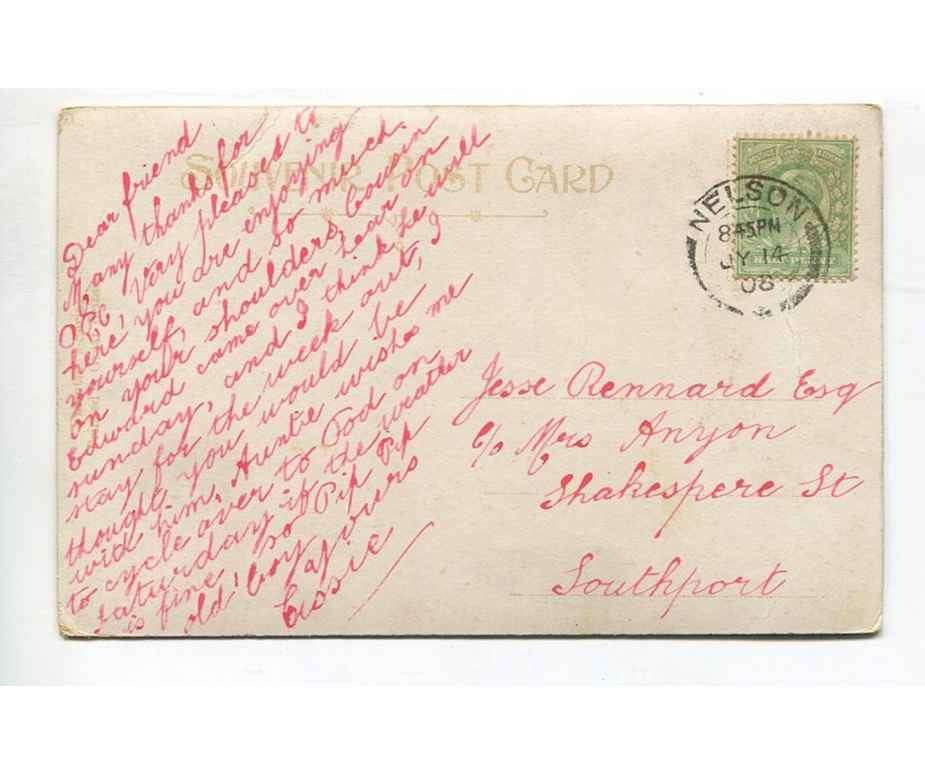 SOUVENIR POST CARD
Dear friend
Many thanks for
P.C. very pleased to
here, you are enjoying
yourself, and so much
on your shoulders, Cousin
Edward came over hear on
sunday, and I think he will
stay for the week out, I
thought you would be
with him, Auntie wishe me
to cycle over to Tod on
saturday if the weather
is fine, so Pip Pip
old boy
yours
Cissie
NELSON
8.45PM
JY 14
06
HALF PENNY
Jesse Rennard Esq
c/o Mrs Anyon
Shakespere St
Southport